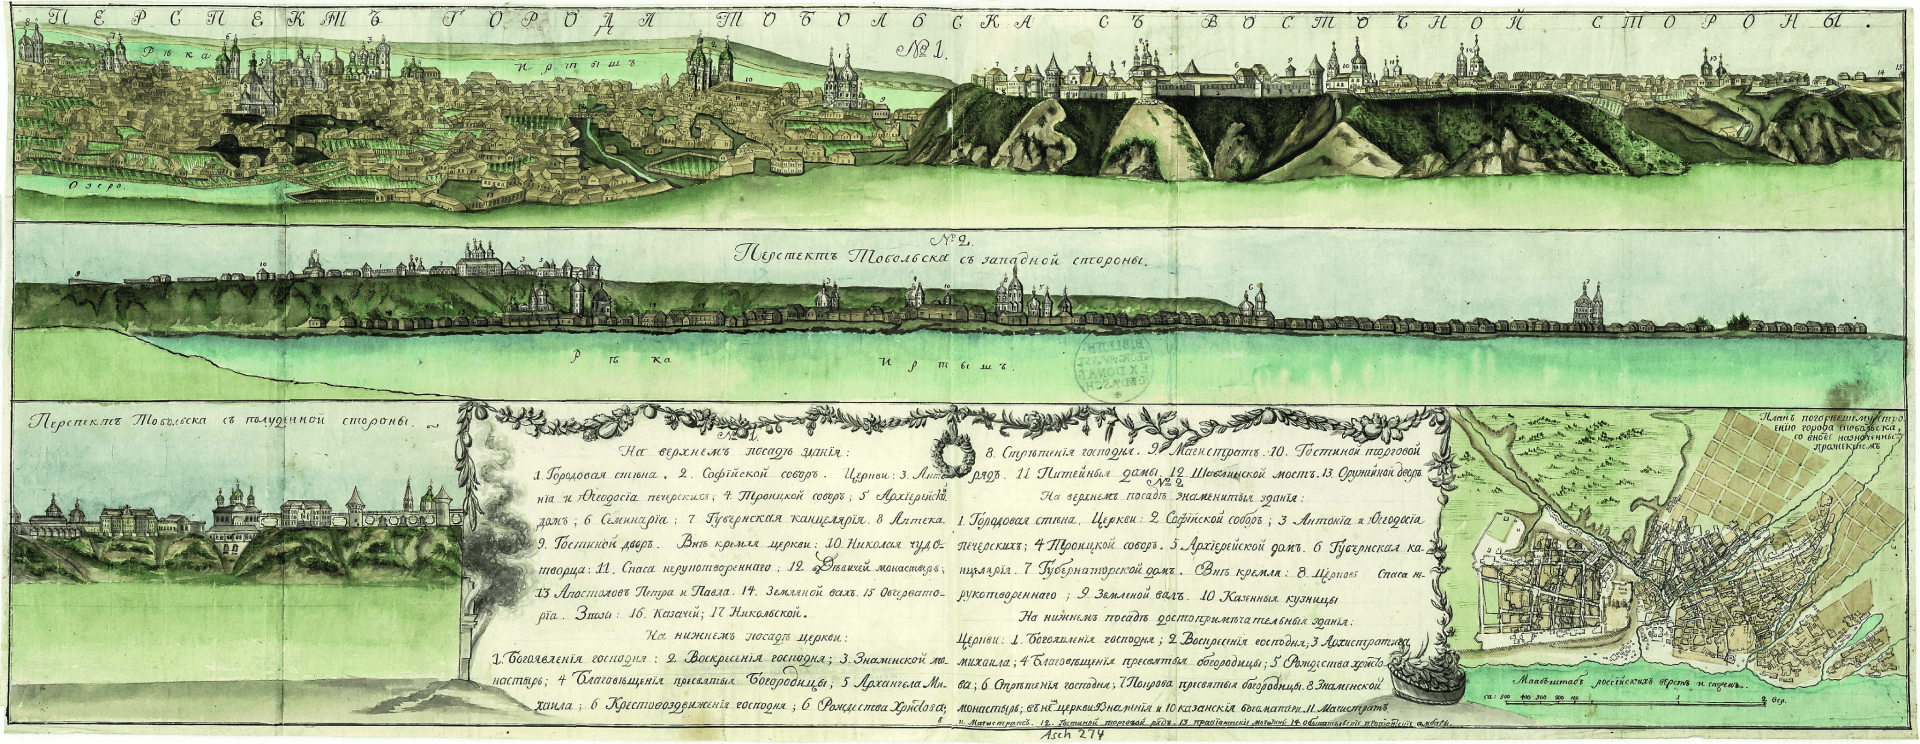 ПЕРСПЕКТЪ ГОРОДА ТОБОЛЬСКА СЪ ВОСТОЧНОЙ СТОРОНЫ.
№ 1.
Рѣка Иртышъ
Озеро
№ 2.
Перспектъ Тобольска съ западной стороны.
Рѣка Иртышъ.
Перспектъ Тобольска съ полуденной стороны.
№ 1.
На верхнемъ посадѣ зданія:
1. Городовая стѣна. 2. Софійской соборъ. Церкви: 3. Анто-
нія и Ѳеодосія печерскихъ; 4. Троицкой соборъ; 5 Архіерейской
домъ; 6 Семинарія; 7 Губернская канцелярія. 8 Аптека.
9. Гостиной дворъ. Внѣ кремля церкви: 10. Николая чудо-
творца: 11. Спаса нерукотвореннаго; 12. Дѣвичей монастырь;
13 Апостоловъ Петра и Павла. 14. Земляной валъ. 15 Обсервато-
рія. 16. Казачей; 17 Никольской.
На нижнемъ посадѣ церкви:
1. Богоявленія господня: 2 Воскресенія господня; 3 Знаменской мо-
настырь; 4 Благовѣщенія пресвятыя Богородицы; 5 Архангела Ми-
хаила; 6 Крестовоздвиженія господня; 6 Рождества Христова;
8. Стрѣтенія господня. 9. Магистратъ. 10. Гостиной торговой
рядъ. 11 Питейныя домы. 12 мостъ. 13 Оружейной дворъ.
№ 2
На верхнемъ посадѣ знаменитыя зданія:
1 Городовая стѣна. Церкви: 2 Софійской соборъ; 3 Антонія и Ѳеодосія
печерскихъ; 4 Троицкой соборъ. 5 Архіерейской домъ. 6 Губернская ка-
нцелярія. 7 Губернаторской домъ. Внѣ кремля: 8 Церковь Спаса не-
рукотвореннаго; 9 Земленой валъ. 10 Казенныя кузницы
На нижнемъ посадѣ достопримѣчательныя зданія:
Церкви: 1. Богоявленія господня; 2 Воскресенія господня; 3 Архистратига
михаила; 4 Благовѣщенія пресвятыя богородицы; 5 Рождества Христо-
ва; 6 Стрѣтенія господня; 7 Покрова пресвятыя богородицы. 8 Знаменской
монастырь; въ немъ церкви 9 Знаменія и 10 казанскія богоматери. 11. Магистратъ.
11. Магистратъ. 12. Гостиной торговой рядъ. 13 магазины 14
Планъ погорѣвшему строе-
нію города тобольска,
со вновь назначеннымъ
прожектомъ
Маасштабъ россійскихъ верстъ и сажень.
Asch 274